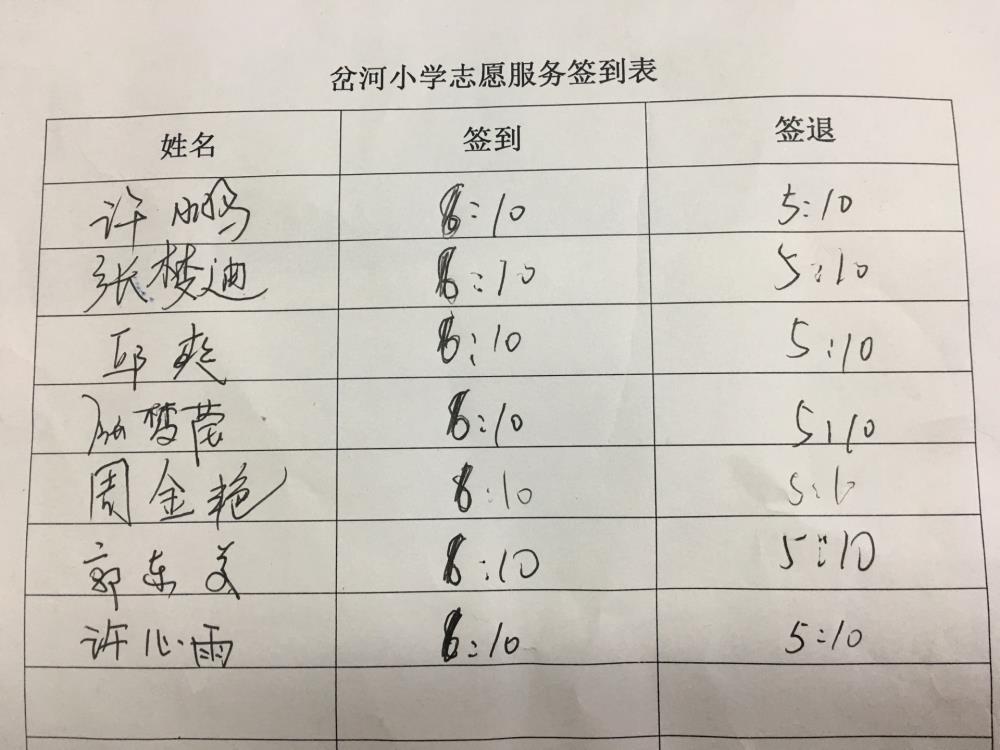 岔河小学志愿服务签到表
姓名 签到 签退
许 :10 5:10
张梦迪 :10 5:10
邱爽 :10 5:10
梦 :10 5:10
周金艳 :10
郭东美 :10 5:10
许心雨 :10 5:10